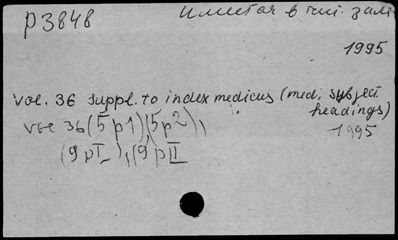 р3848
в чит. зале
1995
vol. 36 suppl. to index medicus (med. subject.
headings)
vol 36 (5 p1), (5 p2),
1995
(9 pI), (9 pII